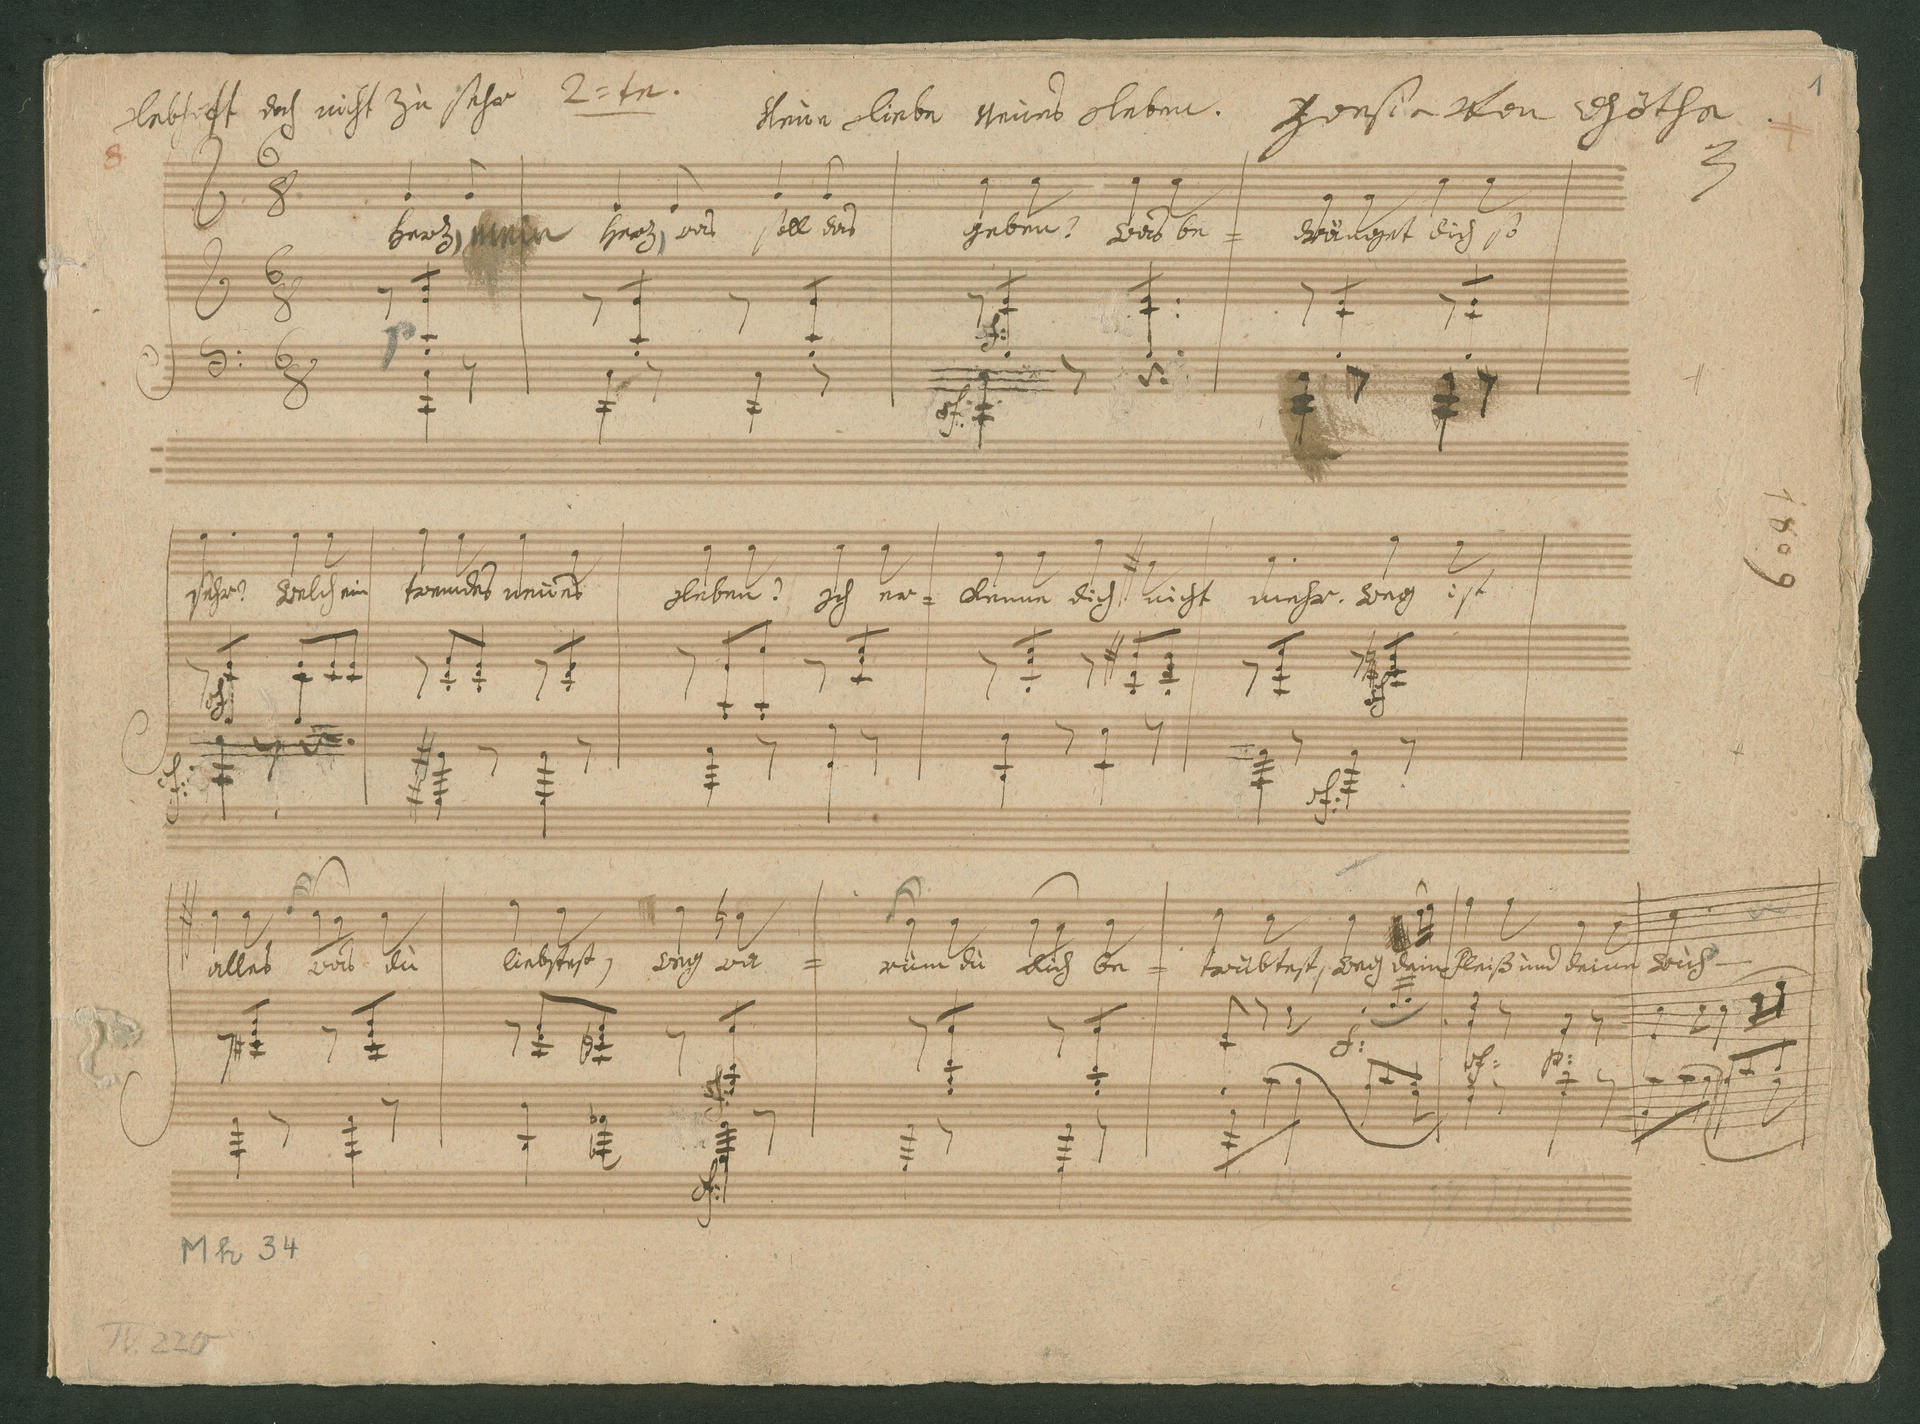 lebhaft doch nicht zu sehr 2=te. Neue liebe Neues leben. Poesie von Göthe
1
8
3
Herz, mein Herz, was soll das geben? was be= dränget dich so
1809
sehr? welch ein fremdes neues leben? ich er= kenne dich nicht mehr. weg ist
alles was du liebtest, weg wa= rum du dich be= trübtest, weg dein fleiß und deine Ruh—
Mh 34
IV. 220